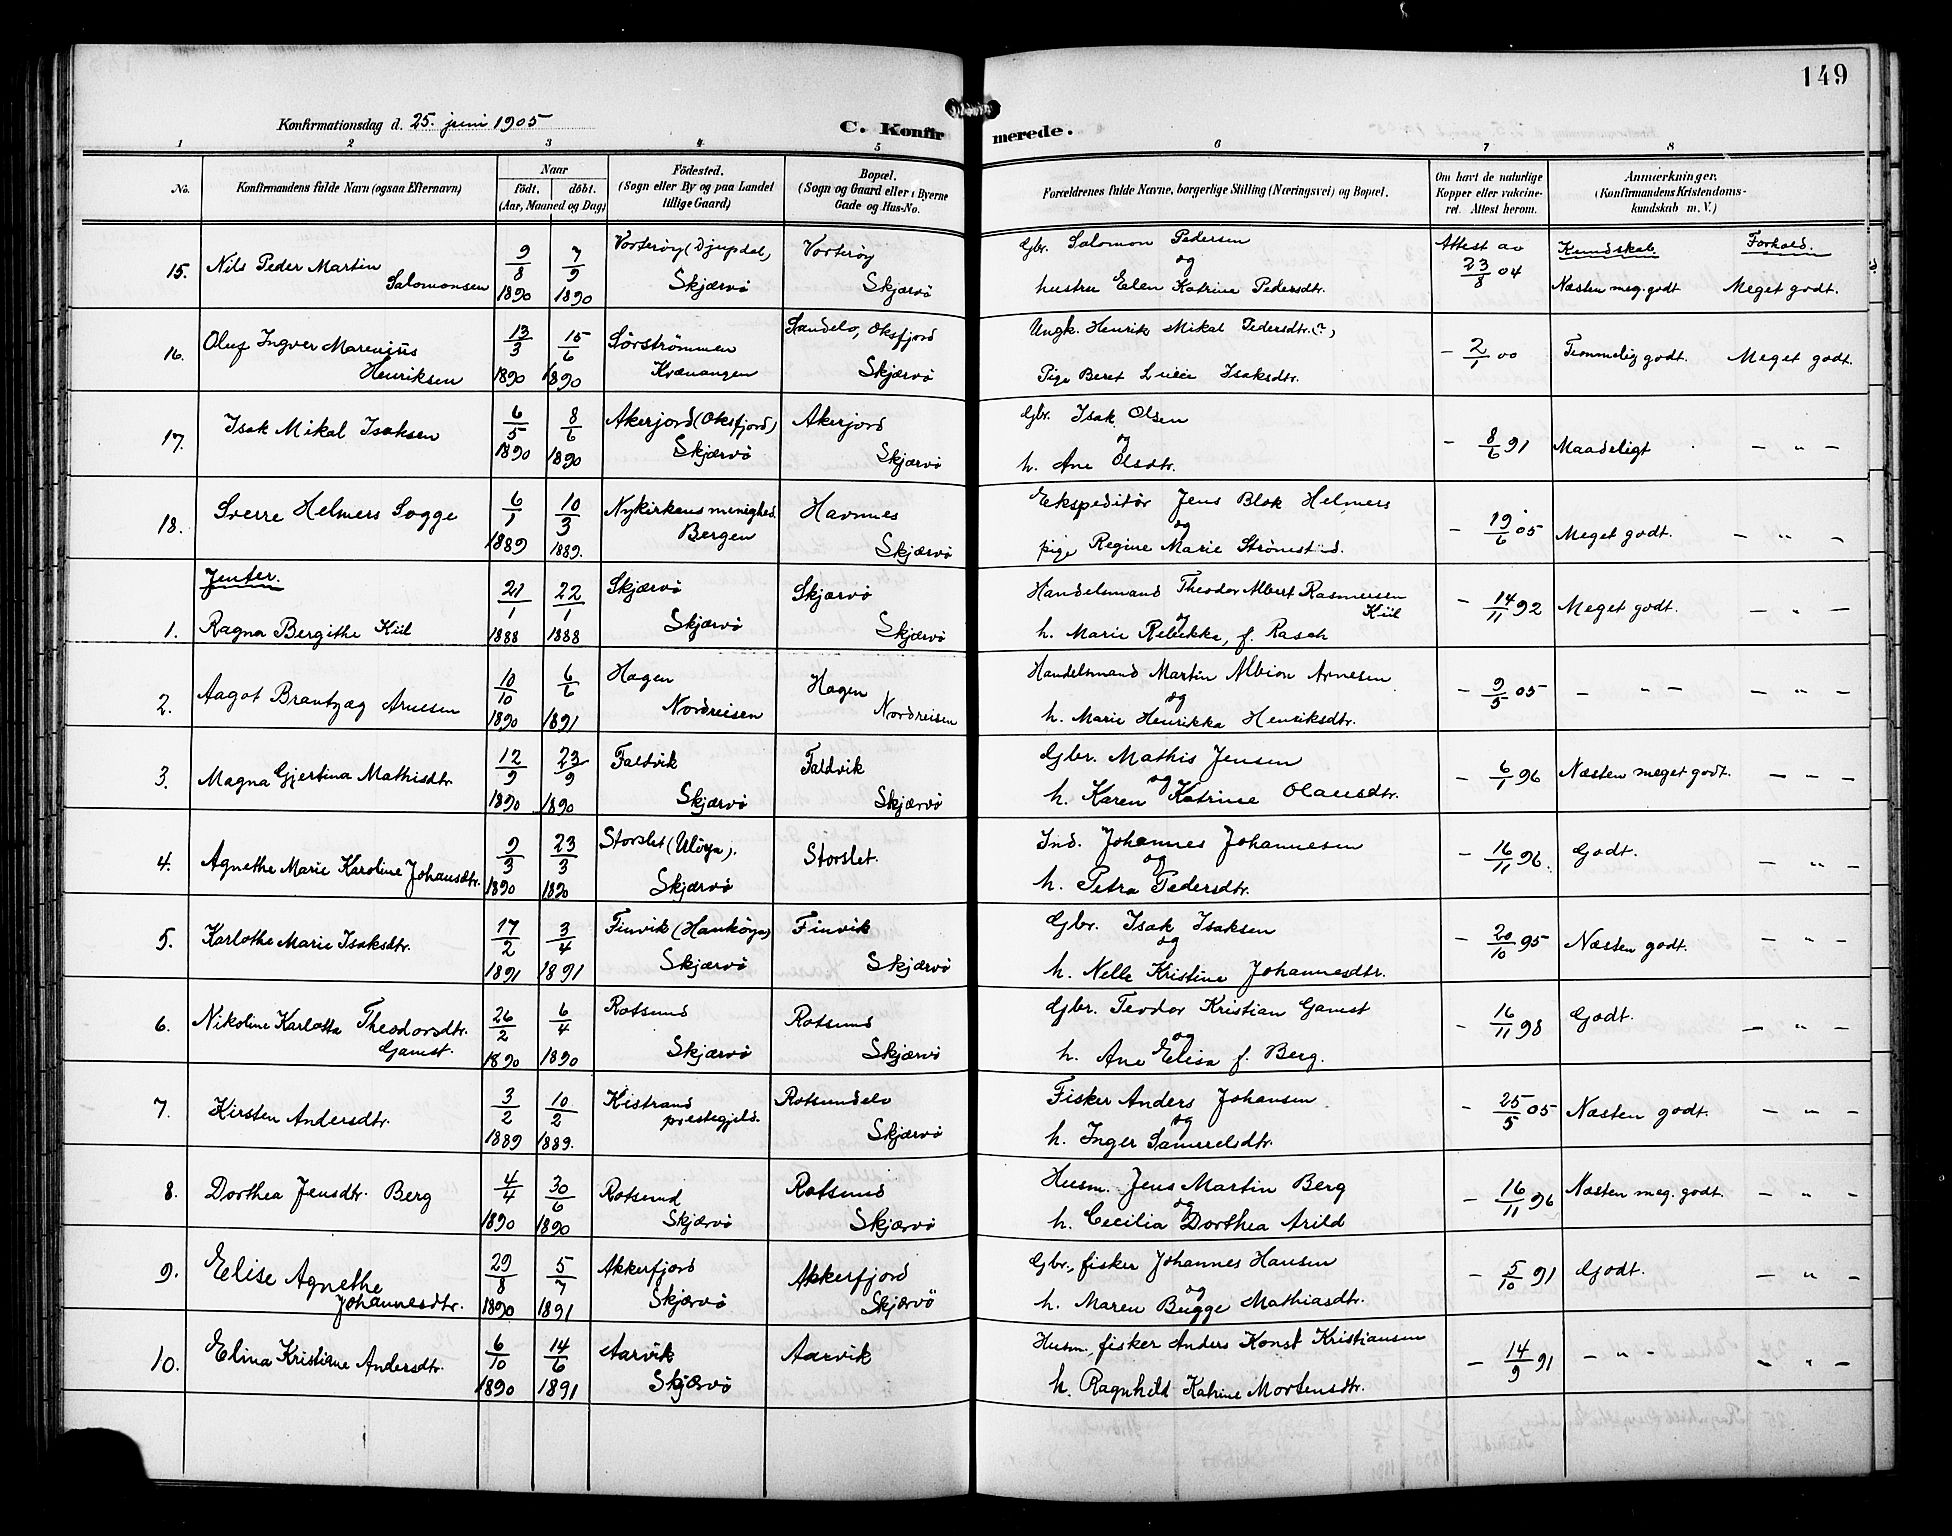 149
Konfirmationsdag d. 25. juni 1905
C. Konfirmerede.
1 2 3 4 5 6 7 8
No.
Konfirmandens fulde Navn (ogsaa Efternavn)
Naar
födt. döbt.
(Aar, Maaned og Dag)
Födested.
(Sogn eller By og paa Landet
tillige Gaard)
Bopæl.
(Sogn og Gaard eller i Byerne
Gade og Hus-No.
Forældrenes fulde Navne, borgerlige Stilling (Næringsvei) og Bopæl.
Om havt de naturlige
Kopper eller vakcine-
ret. Attest herom.
Anmærkninger.
(Konfirmandens Kristendoms-
kundskab m. V.)
Kundskab. Forhold.
15. Nils Peder Martin
Salomonsen
9/8 1890 7/9 1890
Vorterøy (Djupdal,
Skjærvö
Vorterøy
Skjærvö
Gbr. Salomon Pedersen
og
hustru Elen Katrine Pedersdtr.
Attest av
23/8 04
Næsten meg. godt Meget godt.
16. Oluf Ingver Marenius
Henriksen
13/3 1890 15/6 1890
Sörströmmen
Kvænangen
Sandelv, Oksfjord
Skjærvö
Ungk. Henrik Mikal Pedersdtr. (?)
Pige Beret Lucie Isaksdtr.
- 2/1 00
Temmelig godt. Meget godt.
17. Isak Mikal Isaksen
6/5 1890 8/6 1890
Akerjord (Oksfjord)
Skjærvö
Akerjord
Skjærvö
Gbr. Isak Olsen
og
h. Ane Olsdtr.
- 8/6 91
Maadeligt - " -
18. Sverre Helmers Sogge
6/1 1889 10/3 1889.
Nykirkens menighed
Bergen
Havnnes
Skjærvö
Ekspeditör Jens Blok Helmers
og
pige Regine Marie Strömstind.
- 19/6 05
Meget godt. - " -
Jenter.
1. Ragna Bergithe Kiil
21/1 1888 22/1 1888
Skjærvö
Skjærvö
Skjærvö
Skjærvö
Handelsmand Theodor Albert Rasmussen
Kiil
og
h. Marie Rebekka, f. Rasch
- 14/11 92
Meget godt. - " -
2. Aagot Brantzæg Arnesen
10/10 1890 6/6 1891
Hagen
Nordreisen
Hagen
Nordreisen
Handelsmand Martin Albion Arnesen
og
h. Marie Henrikka Henriksdtr.
- 9/5 05
- " - - " -
3. Magna Gjertina Mathisdtr.
12/9 1890 23/9 1890
Faldvik
Skjærvö
Faldvik
Skjærvö
Gbr. Mathis Jensen
og
h. Karen Katrine Olausdtr.
- 6/1 96
Næsten meget godt. - " -
4. Agnethe Marie Karoline Johansdtr.
9/3 1890 23/3 1890
Storslet (Ulöya).
Skjærvö
Storslet.
Ind. Johannes Johannesen
og
h. Petra Pedersdtr.
- 16/11 96.
Godt. - " -
5. Karlothe Marie Isaksdtr.
17/2 1891 3/4 1891
Finvik (Hauköya)
Skjærvö
Finvik
Skjærvö
Gbr. Isak Isaksen
og
h. Nelle Kristine Johannesdtr.
- 20/10 95
Næsten godt. - " -
6. Nikoline Karlotta Theodorsdtr.
Gamst.
26/2 1890 6/4 1890
Rotsund
Skjærvö
Rotsund
Skjærvö
Gbr. Teodor Kristian Gamst
og
h. Ane Elisa f. Berg.
- 16/11 98
Godt. - " -
7. Kirsten Andersdtr.
3/2 1889 10/2 1889.
Kistrand
prestegjeld.
Rotsundelv
Skjærvö
Fisker Anders Johansen
og
h. Inger Samuelsdtr.
- 25/5 05
Næsten godt. - " -
8. Dorthea Jensdtr. Berg
4/4 1890 30/6 1890
Rotsund
Skjærvö
Rotsund
Skjærvö
Husm. Jens Martin Berg
og
h. Cecilia Dorthea Arild
- 16/11 96
Næsten meg. godt. - " -
9. Elise Agnethe
Johannesdtr.
29/8 1890 5/7 1891
Akkerfjord
Skjærvö
Akkerfjord
Skjærvö
Gbr., fisker Johannes Hansen
og
h. Maren Bugge Mathiasdtr.
- 5/10 91
Godt. - " -
10. Elina Kristiane Andersdtr.
6/10 1890 14/6 1891
Aarvik
Skjærvö
Aarvik
Husm., fisker Anders Konst Kristiansen
h. Ragnhild Katrine Mortensdtr.
- 14/9 91
- " - - " -